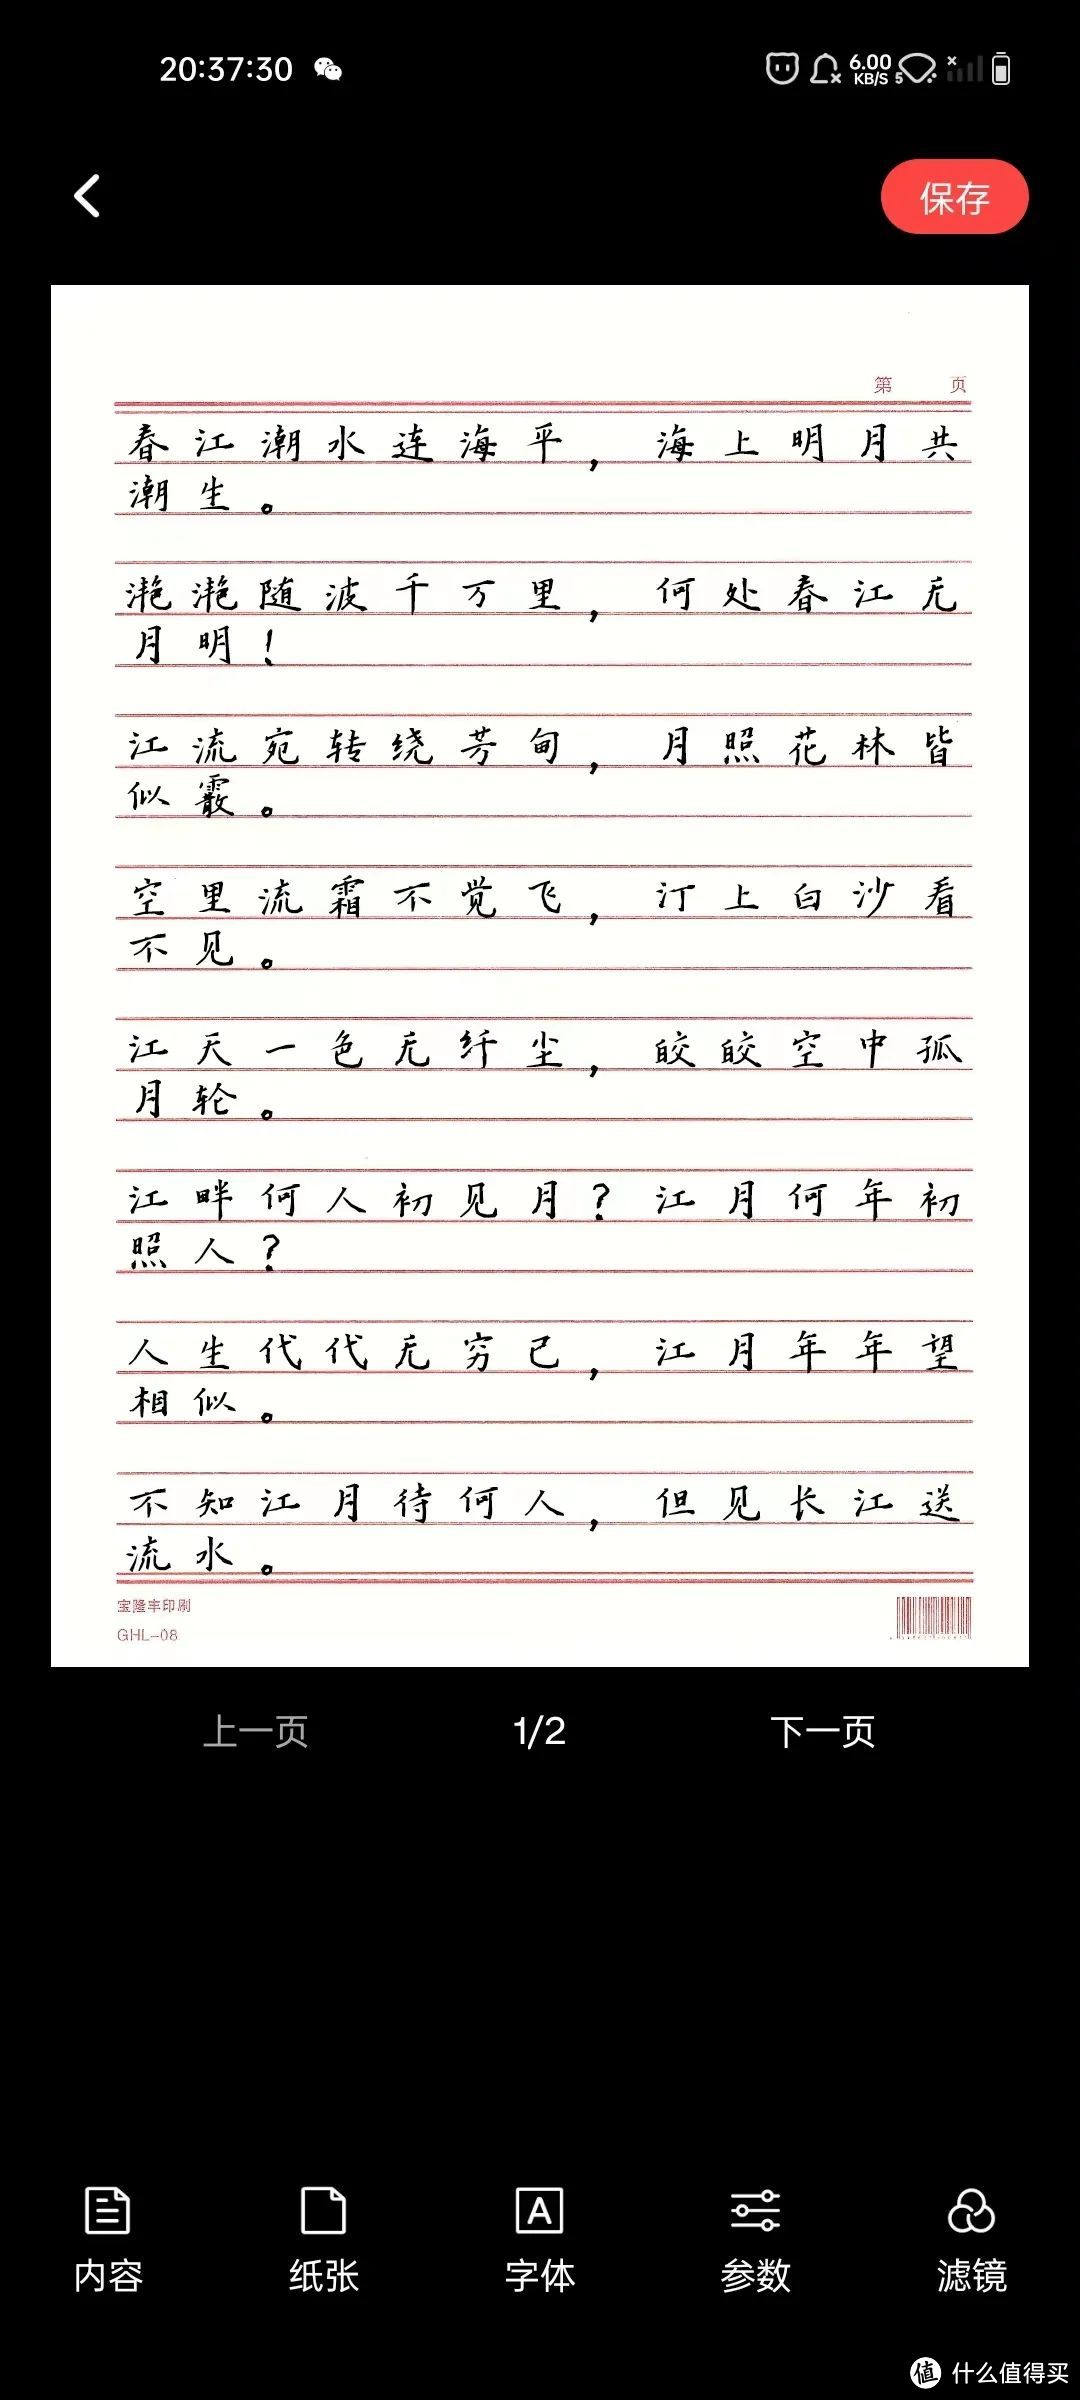 20:37:30
6.00 KB/S 5
保存
第 页
春江潮水连海平，海上明月共
潮生。
滟滟随波千万里，何处春江无
月明！
江流宛转绕芳甸，月照花林皆
似霰。
空里流霜不觉飞，汀上白沙看
不见。
江天一色无纤尘，皎皎空中孤
月轮。
江畔何人初见月？江月何年初
照人？
人生代代无穷已，江月年年望
相似。
不知江月待何人，但见长江送
流水。
宝隆丰印刷
GHL-08
上一页 1/2 下一页
A
内容 纸张 字体 参数 滤镜
值 什么值得买